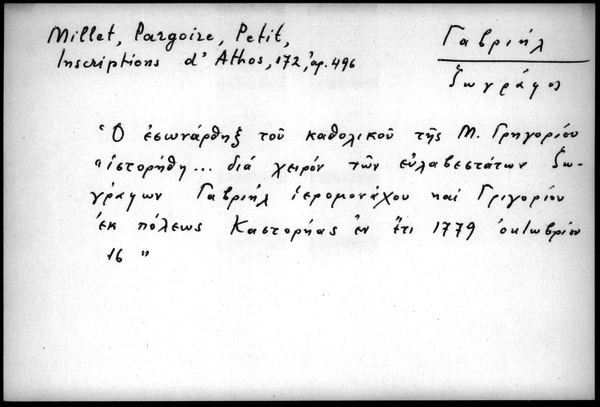 Millet, Pargoire, Petit,
Inscriptions d'Athos, 172, ἀρ. 496
Γαβριήλ
ζωγράφος
Ὁ ἐσωνάρθηξ τοῦ καθολικοῦ τῆς Μ. Γρηγορίου
"ἱστορήθη... διά χειρόν τῶν εὐλαβεστάτων ζω-
γράφων Γαβριήλ ἱερομονάχου καί Γριγορίου
ἐκ πόλεως Καστορήας ἐν ἔτι 1779 ὀκτωβρίου
16"